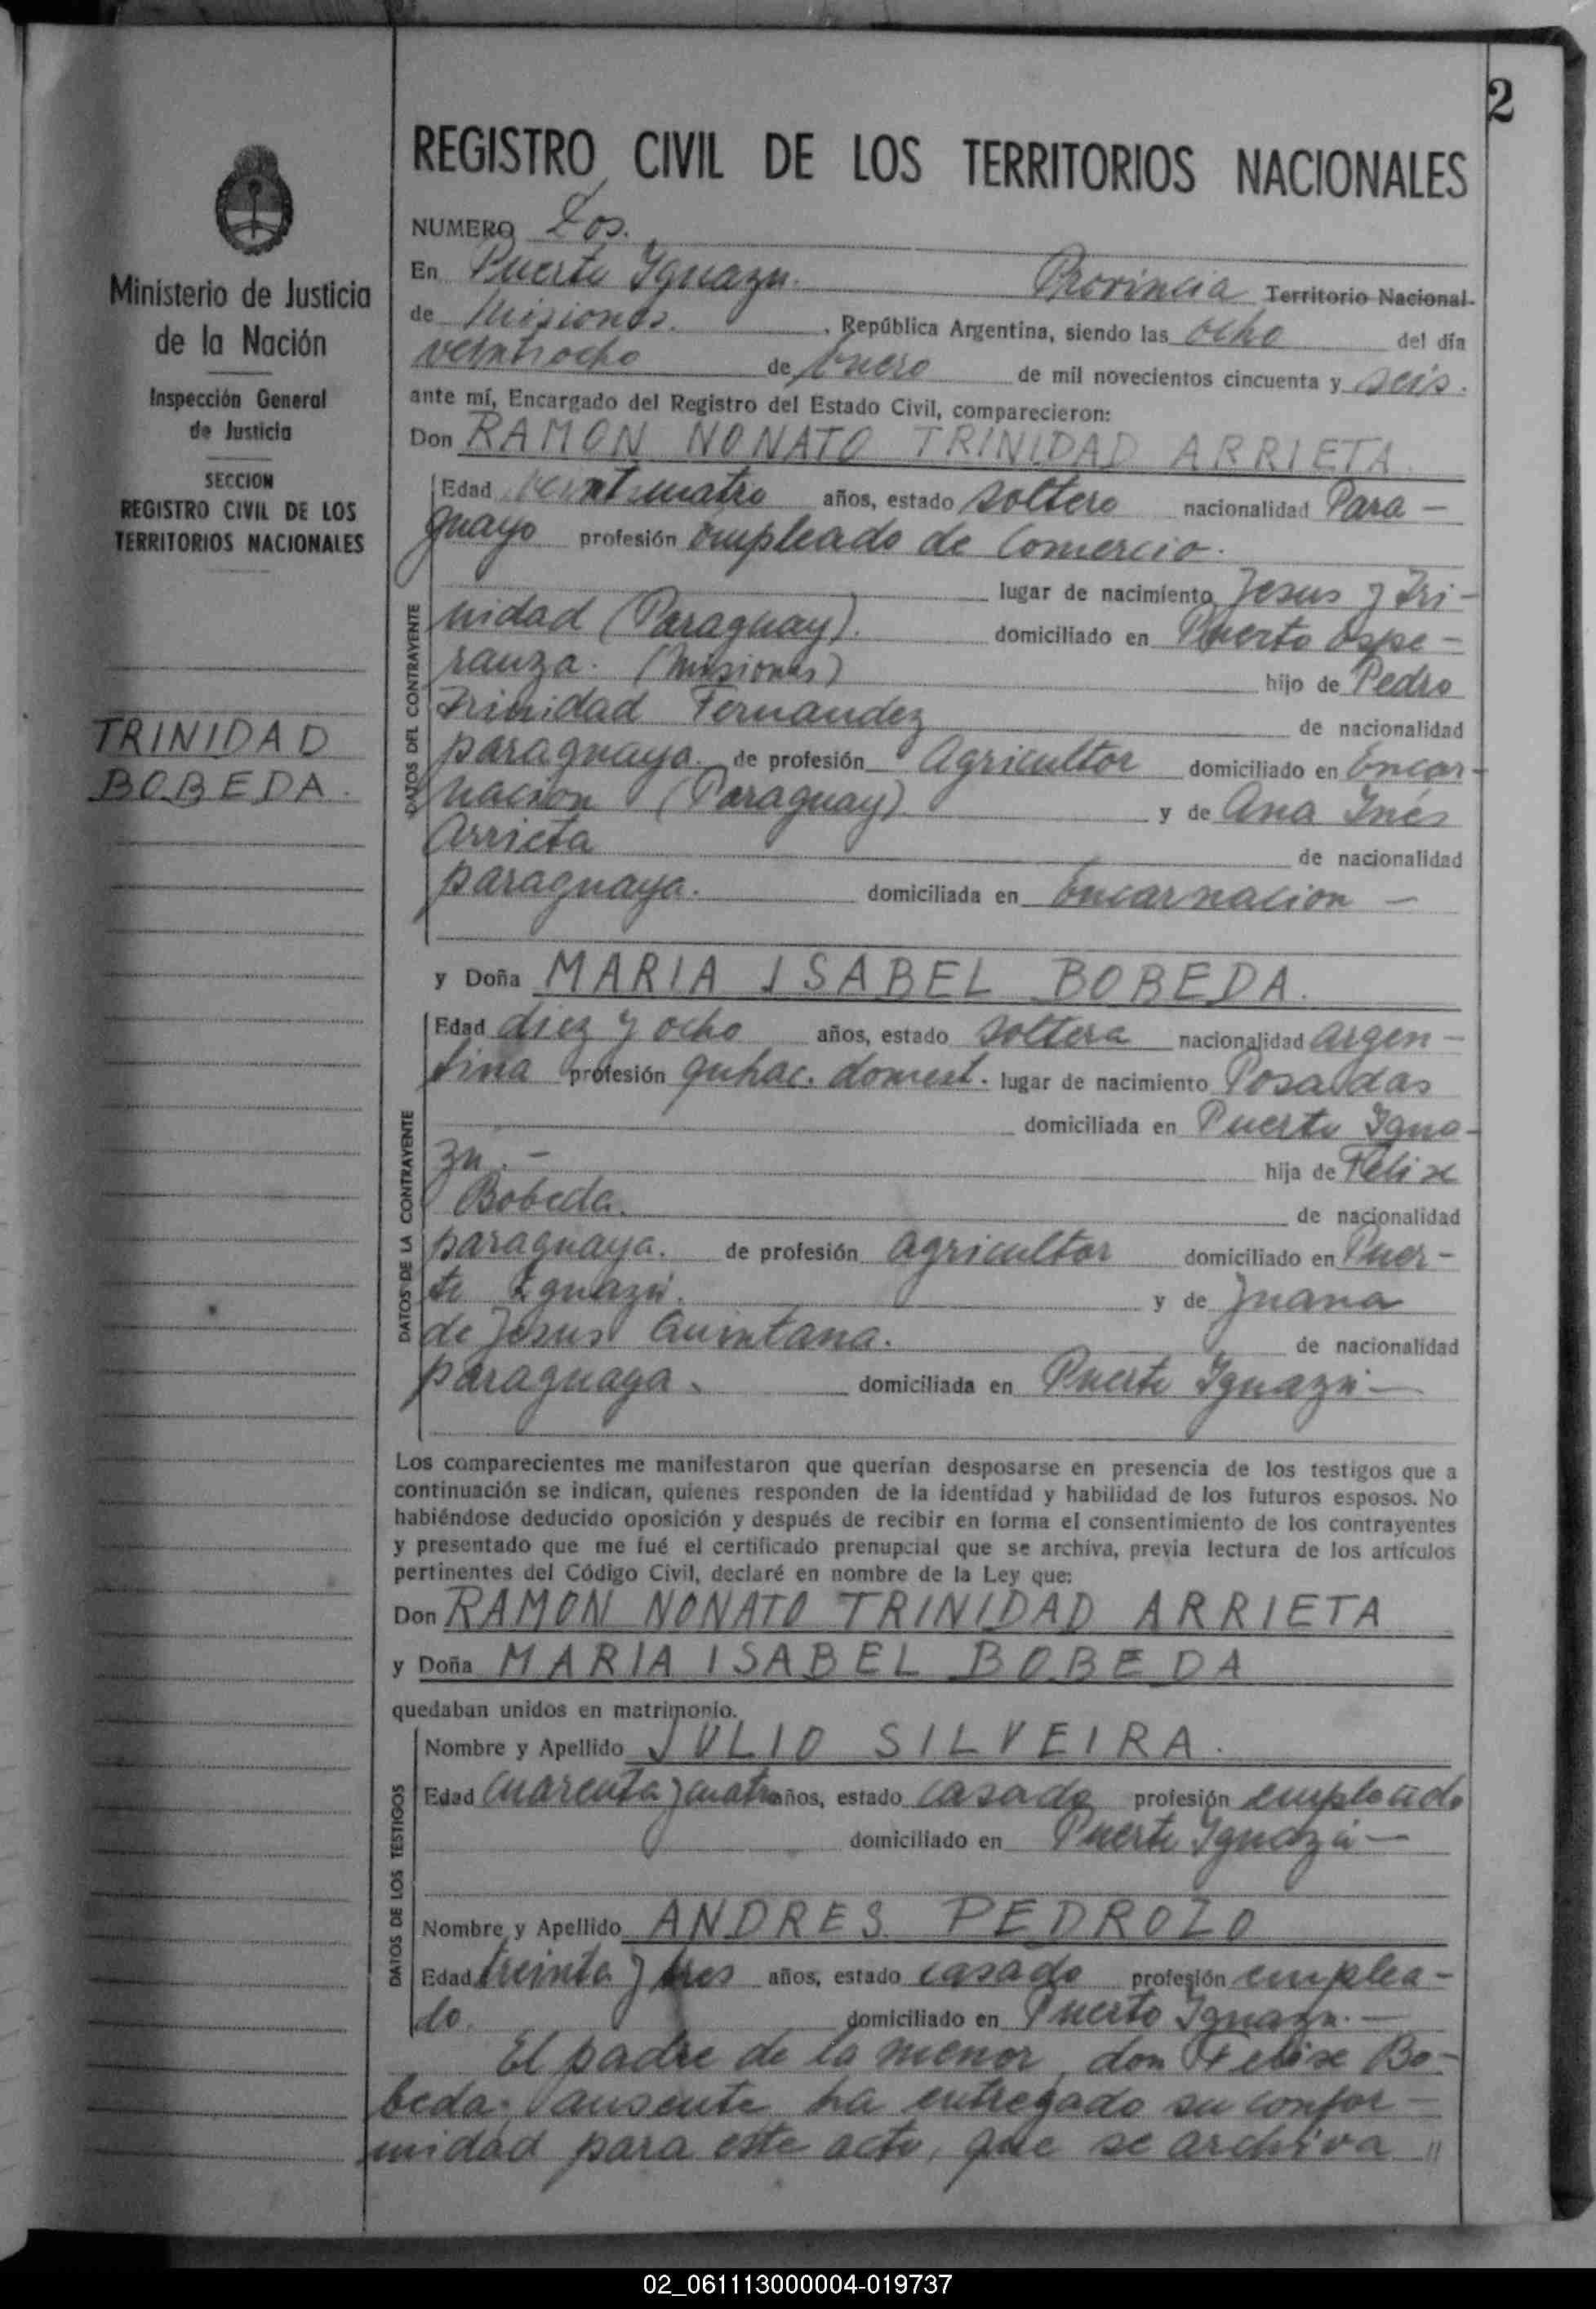 2
REGISTRO CIVIL DE LOS TERRITORIOS NACIONALES
Ministerio de Justicia
de la Nación
Inspección General
de Justicia
SECCION
REGISTRO CIVIL DE LOS
TERRITORIOS NACIONALES
TRINIDAD
BOBEDA.
NUMERO Dos.
En Puerto Iguazu. Provincia Territorio Nacional
de Misiones. , República Argentina, siendo las ocho del día
veintiocho de Enero de mil novecientos cincuenta y seis.
ante mí, Encargado del Registro del Estado Civil, comparecieron:
Don RAMON NONATO TRINIDAD ARRIETA.
DATOS DEL CONTRAYENTE
Edad veinticuatro años, estado soltero nacionalidad Para-
guayo profesión empleado de Comercio.
lugar de nacimiento Jesus y Tri-
nidad (Paraguay). domiciliado en Puerto Espe-
ranza. (Misiones) hijo de Pedro
Trinidad Fernandez de nacionalidad
paraguaya. de profesión Agricultor domiciliado en Encar-
nacion (Paraguay) y de Ana Inés
Arrieta de nacionalidad
paraguaya. domiciliada en Encarnacion -
y Doña MARIA ISABEL BOBEDA.
DATOS DE LA CONTRAYENTE
Edad diez y ocho años, estado soltera nacionalidad argen-
tina profesión quhac. domest. lugar de nacimiento Posadas
domiciliada en Puerto Igua-
zu. - hija de Felix
Bobeda. de nacionalidad
paraguaya. de profesión agricultor domiciliado en Puer-
to Iguazú. y de Juana
de Jesus Quintana. de nacionalidad
paraguaya. domiciliada en Puerto Iguazú -
Los comparecientes me manifestaron que querían desposarse en presencia de los testigos que a
continuación se indican, quienes responden de la identidad y habilidad de los futuros esposos. No
habiéndose deducido oposición y después de recibir en forma el consentimiento de los contrayentes
y presentado que me fué el certificado prenupcial que se archiva, previa lectura de los artículos
pertinentes del Código Civil, declaré en nombre de la Ley que:
Don RAMON NONATO TRINIDAD ARRIETA
y Doña MARIA ISABEL BOBEDA
quedaban unidos en matrimonio.
DATOS DE LOS TESTIGOS
Nombre y Apellido JULIO SILVEIRA.
Edad cuarenta y cuatro años, estado casado profesión empleado
domiciliado en Puerto Iguazú -
Nombre y Apellido ANDRES PEDROZO
Edad treinta y tres años, estado casado profesión emplea-
do. domiciliado en Puerto Iguazu. -
El padre de la menor, don Felix Bo-
beda, ausente ha entregado su confor-
midad para este acto, que se archiva "
02_061113000004-019737